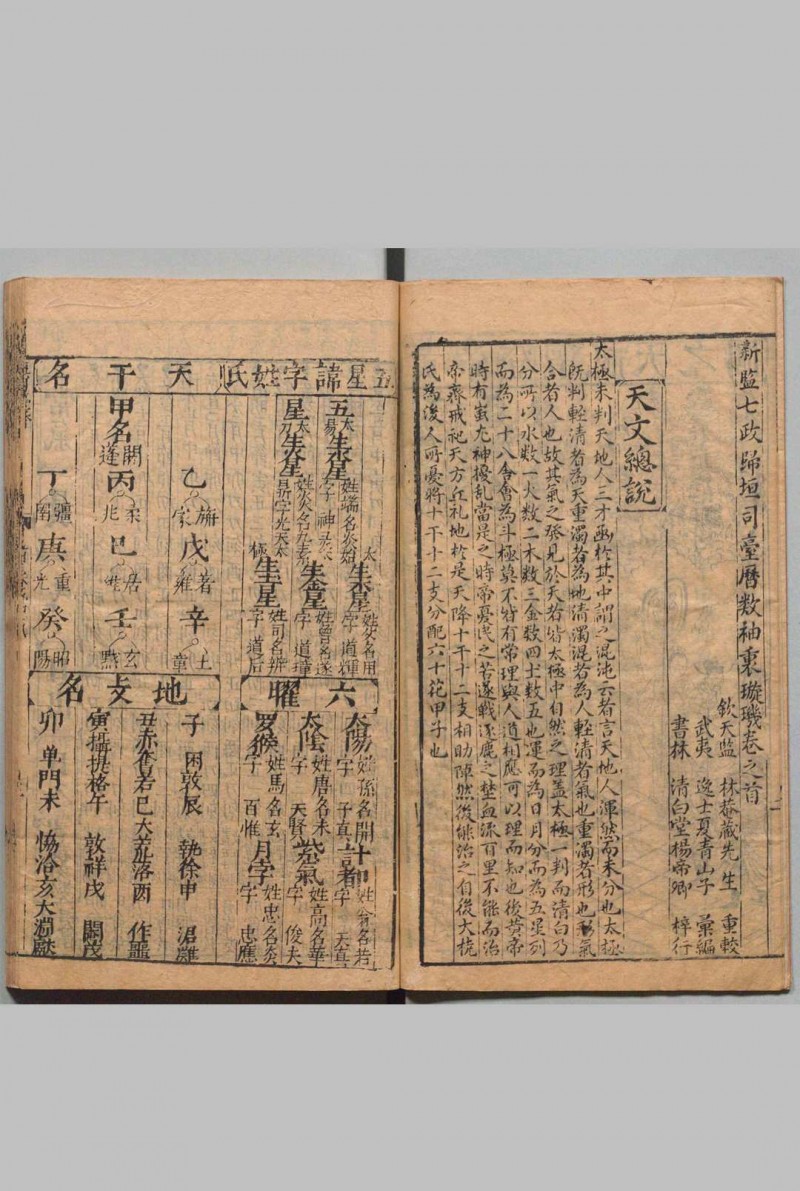 新監七政歸垣司臺曆數袖裏璇璣卷之首
欽天監 林菴藏先生 重較
武夷 逸士夏青山子 彙編
書林 清白堂楊帝卿 梓行
天文總說
太極未判天地人三才凾於其中謂之混沌云者言天地人渾然而未分也太極
既判輕清者為天重濁者為地清濁混者為人輕清者氣也重濁者形也形氣
合者人也故其氣之發見於天者皆太極中自然之理盖太極一判而清白乃
分所以水数一火数二木数三金数四土数五也運而為日月分而為五星列
而為二十八舍會為斗極莫不皆有常理與人道相應可以理而知也後黃帝
時有蚩尤神擾乱當是之時帝憂民之苦遂戰逐鹿之埜血流百里不能而治
帝齋戒祀天方丘礼地於是天降十干十二支相助陣然後能治之自後大撓
氏為後人所憂將十干十二支分配六十花甲子也
五星諱字姓氏
五星
太昜生水星 姓端名炎始 字 神
太初生火星 姓炎名
太始生木星 姓 名 字 道輝
太素生金星 姓曾名遂 字 道瑾
太極生土星 姓司名辨 字 道后
天干名
甲名閼逢
乙 旃蒙
丙 柔兆
丁 疆圉
戊 著雍
巳 居維
庚 重光
辛 上章
壬 玄黓
癸 昭陽
六曜
太陽 姓孫名開 字 子真
太陰 姓唐名末 字 天賢
羅猴 姓馬名玄 字 百惟
計都 姓 名若 字 天真
紫氣 姓高名華 字 俊夫
月孛 姓忠名炎 字 忠應
地支名
子 困敦 辰 執徐 申 涒灘
丑 赤奮若 巳 大荒洛 酉 作噩
寅 攝提格 午 敦祥 戌 閹茂
卯 单閼 未 協洽 亥 大淵獻